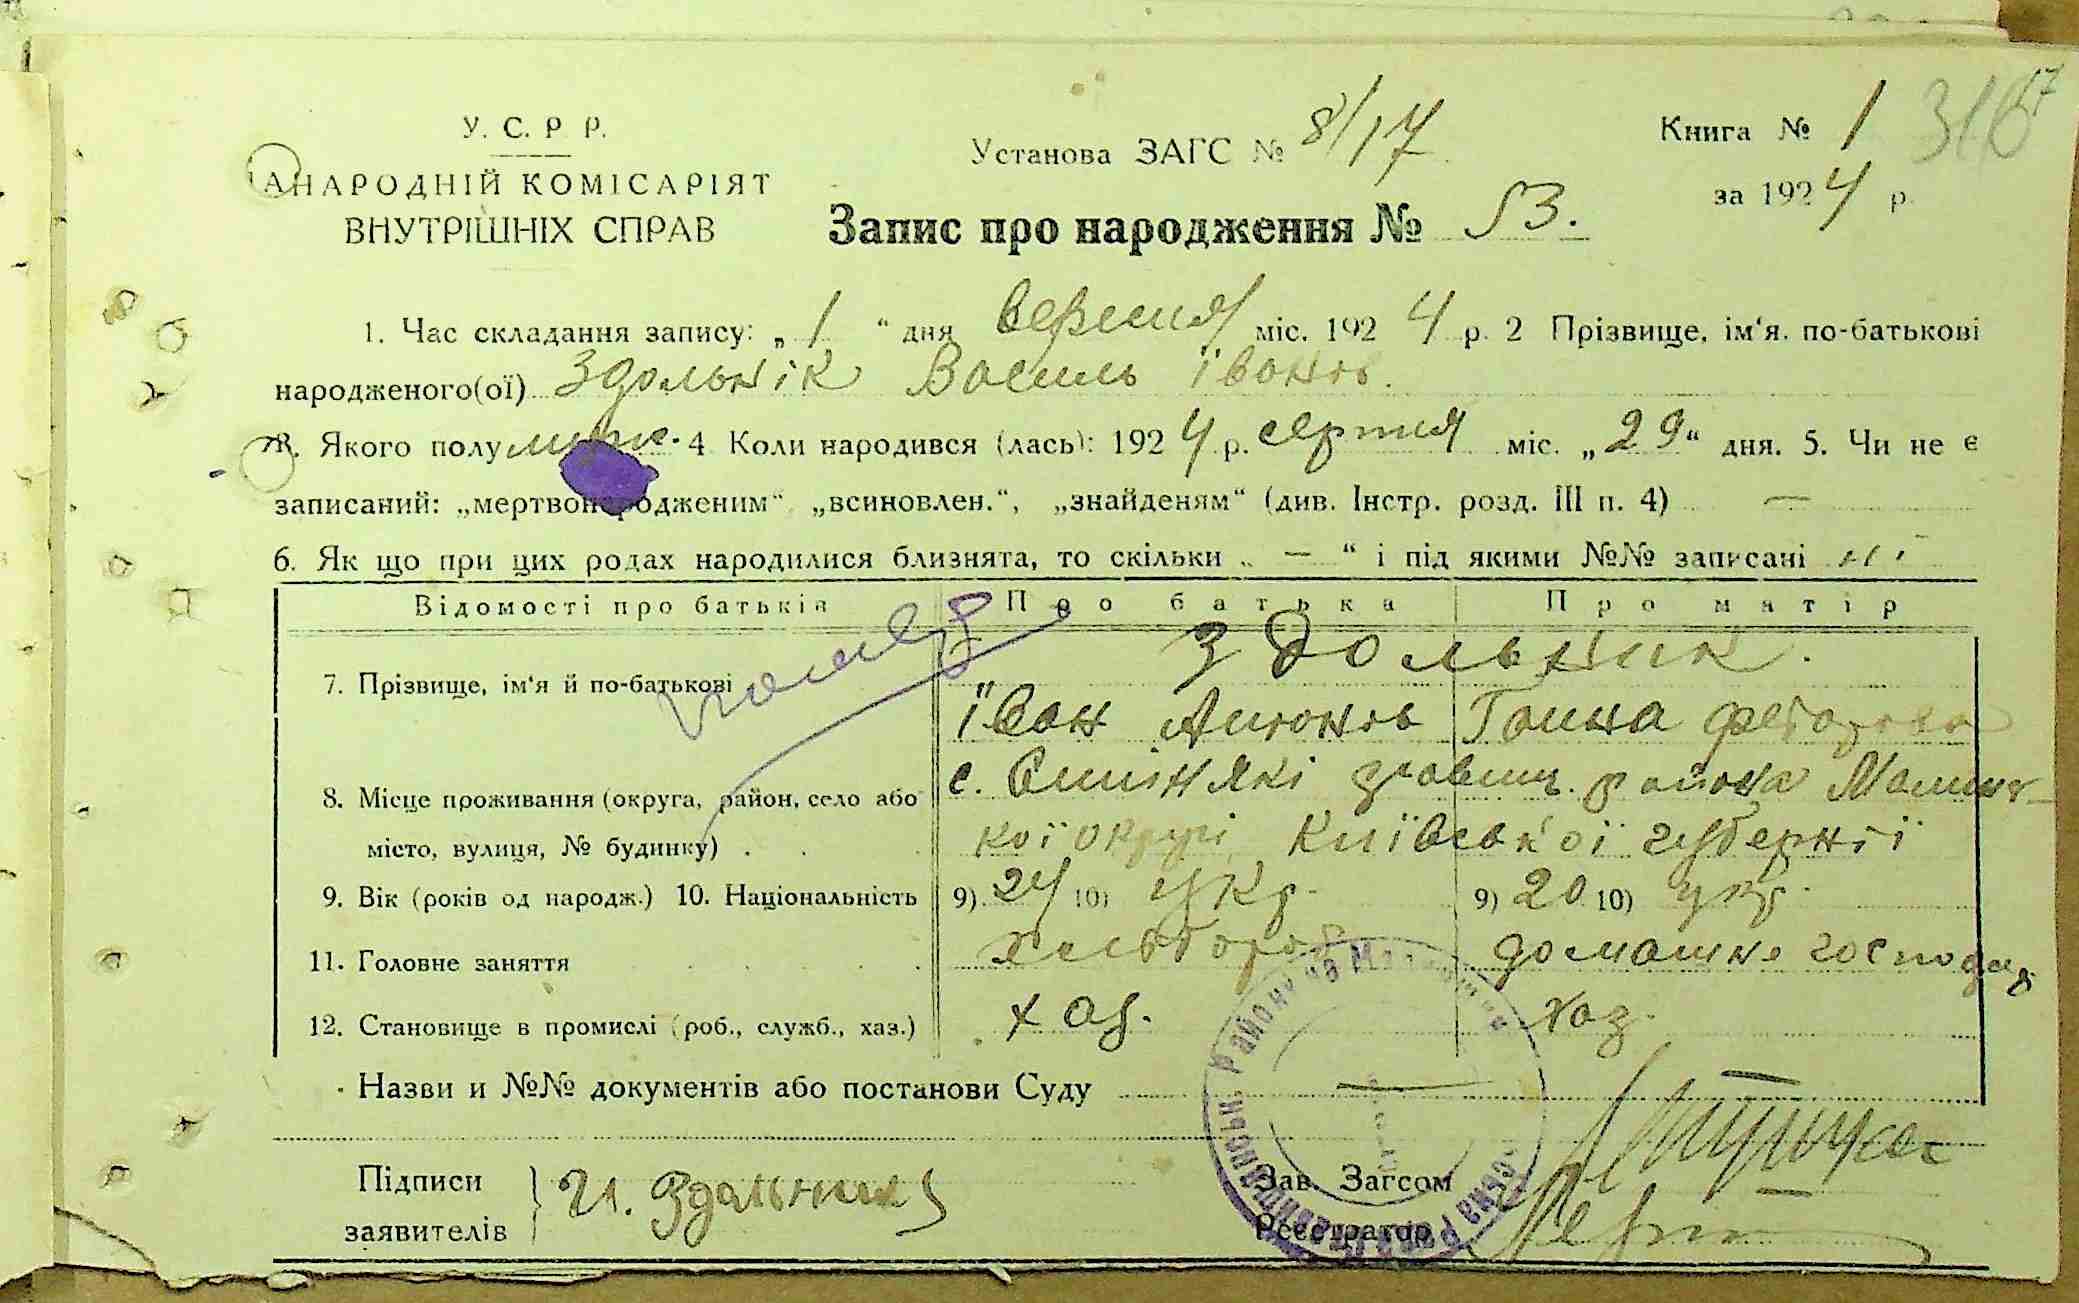 У. С. Р Р.
НАРОДНІЙ КОМІСАРІЯТ
ВНУТРІШНІХ СПРАВ
Установа ЗАГС № 8/17
Книга № 1
за 1924 р.
Запис про народження № 53.
1. Час складання запису: „ 1 “ дня вересня міс. 1924 р. 2 Прізвище, ім'я. по-батькові
народженого(ої) Здольнік Василь Іванов.
3. Якого полу муж. 4 Коли народився (лась): 1924 р. серпня міс. „29“ дня. 5. Чи не є
записаний: „мертвонародженим“ „всиновлен.“, „знайденям“ (див. Інстр. розд. III п. 4) —
6. Як що при цих родах народилися близнята, то скільки „ — “ і під якими №№ записані ні
Відомості про батьків Про батька Про матір
помер
Здольник.
7. Прізвище, ім'я й по-батькові Іван Антонов Ганна Федорова
8. Місце проживання (округа, район, село або с. района Малинс-
місто, вулиця, № будинку) . . . кої округі Київської губернії
9. Вік (років од народж.) 10. Національність 9) 24 10) укр. 9) 20 10) укр.
11. Головне заняття хлібороб домашнє господар
12. Становище в промислі (роб., служб., хаз.) хаз. хаз.
Назви и №№ документів або постанови Суду
Підписи
заявителів
И. Здольник
Зав. Загсом
Реєстратор